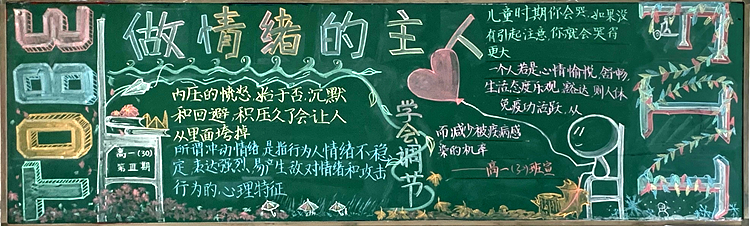 做情绪的主人
内压的愤怒，始于否，沉默
和回避，积压久了会让人
从里面垮掉
所谓冲动情绪是指行为人情绪不稳
定，表达强烈，易产生敌对情绪和攻击
行为的心理特征
高一(30)
第五期
学会调节
儿童时期你会哭，如果没
有引起注意，你就会哭得
更大
一个人若是心情愉悦，舒畅，
生活态度乐观，豁达，则人体
免疫功活跃，从
而减少被疾病感
染的机率
高一(30)班宣